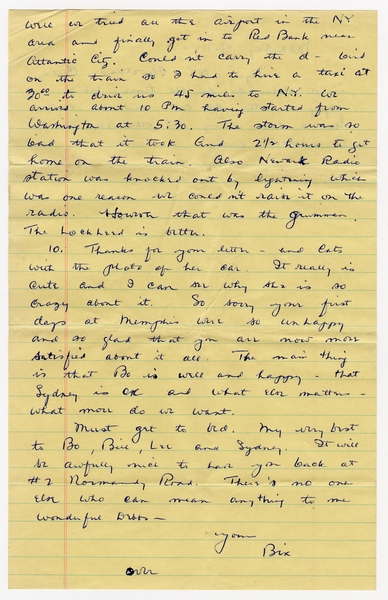 well we tried all the airport in the NY
area and finally got in to Red Bank near
Atlantic City. Couldn't carry the d- bird
on the train so I had to hire a taxi at
30⁰⁰ to drive us 45 miles to NY. We
arrived about 10 PM having started from
Washington at 5:30. The storm was so
bad that it took 2 1/2 hours to get
home on the train. Also Newark Radio
station was knocked out by lightning which
was one reason we couldn't raise it on the
radio. However that was the Grumman.
The Lockheed is better.
10. Thanks for your letter - and Cats
with the photo of her car. It really is
cute and I can see why she is so
crazy about it. So sorry your first
days at Memphis were so unhappy
and so glad that you are now more
satisfied about it all. The main thing
is that Bo is well and happy - that
Sydney is OK and what else matters -
what more do we want.
Must get to bed. My very best
to Bo, Bill, Lee and Sydney. It will
be awfully nice to have you back at
#2 Normandy Road. There's no one
else who can mean anything to me
wonderful Debbs -
Your
Bix
over